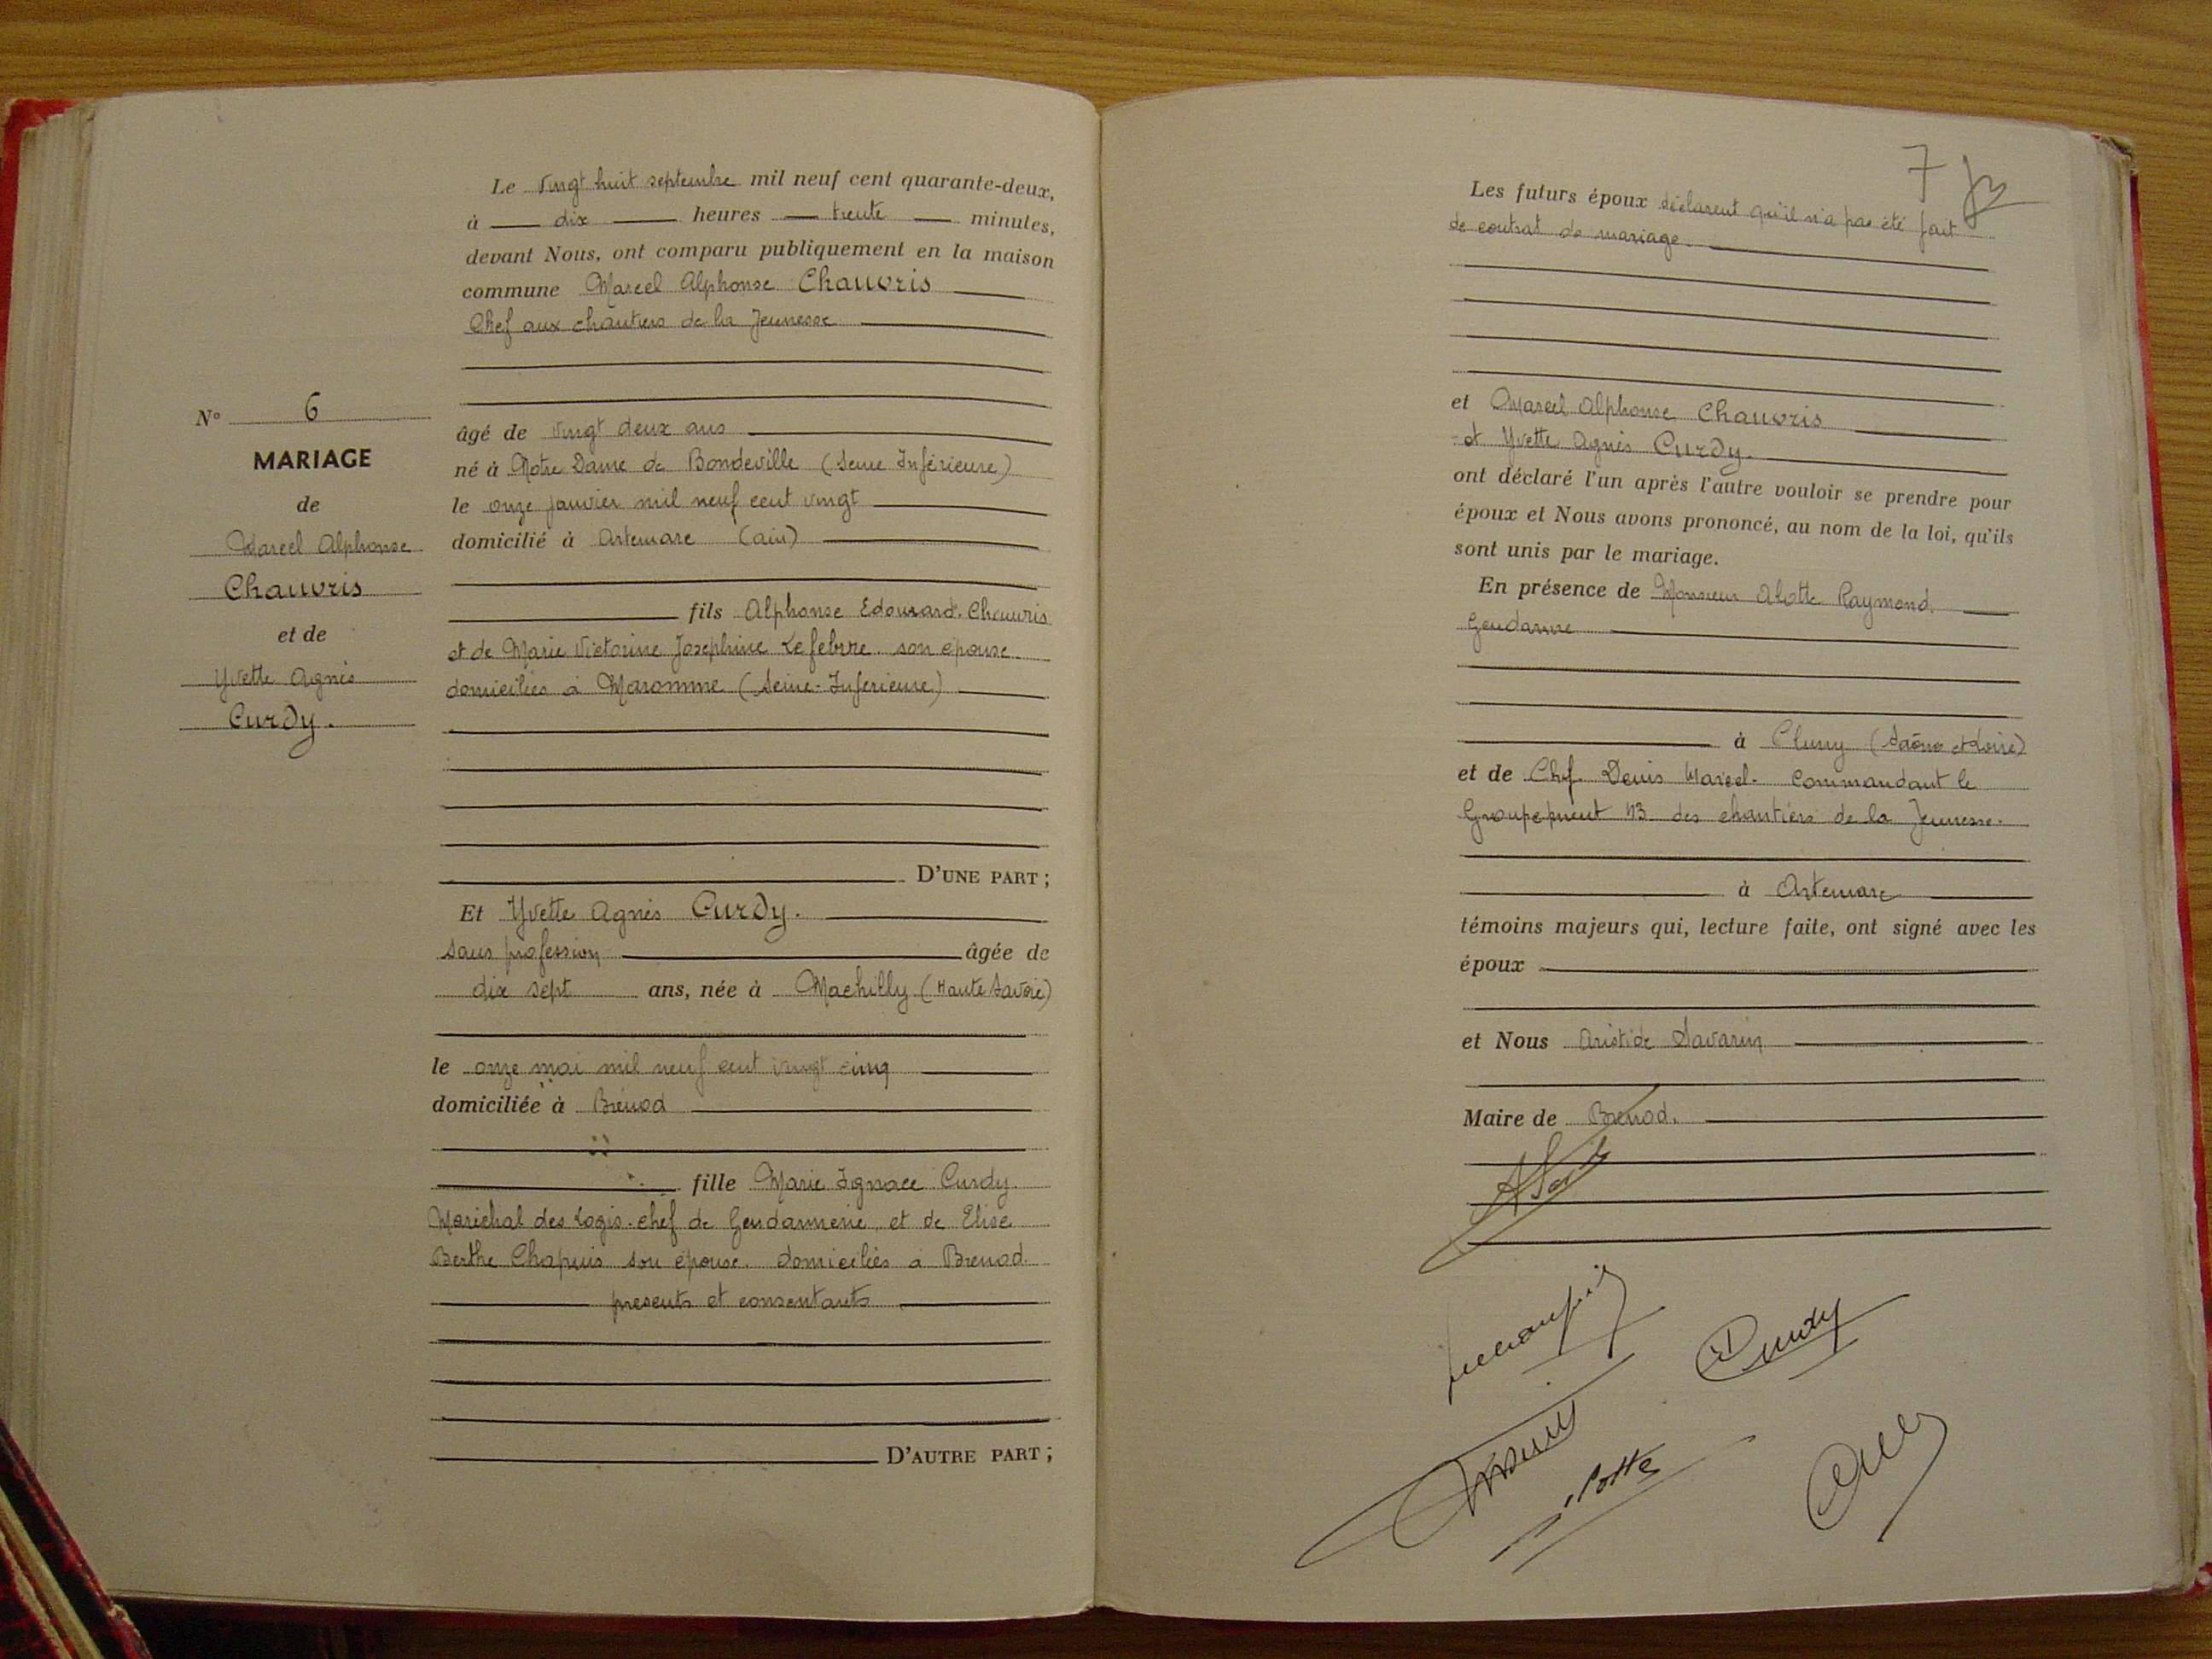 Le vingt huit septembre mil neuf cent quarante-deux,
à dix heures trente minutes,
devant Nous, ont comparu publiquement en la maison
commune Marcel Alphonse Chauvris
Chef aux chantiers de la Jeunesse
N° 6
MARIAGE
de
Marcel Alphonse
Chauvris
et de
Yvette Agnès
Curdy.
âgé de vingt deux ans
né à Notre Dame de Bondeville (Seine Inférieure)
le onze janvier mil neuf cent vingt
domicilié à Artemare (ain)
fils Alphonse Edouard Chauvris
et de Marie Victorine Josephine Lefebvre son épouse
domiciliés à Maromme (Seine-Inferieure)
D'UNE PART ;
Et Yvette Agnès Curdy.
sans profession âgée de
dix sept ans, née à Machilly (Haute Savoie)
le onze mai mil neuf cent vingt cinq
domiciliée à Brénod
fille Marie Ignace Curdy.
Maréchal des Logis-chef de Gendarmerie et de Elise
Berthe Chapuis son épouse. domiciliés à Brenod
presents et consentants
D'AUTRE PART ;
7
Les futurs époux déclarent qu'il n'a pas été fait
de contrat de mariage.
et Marcel Alphonse Chauvris
et Yvette Agnès Curdy.
ont déclaré l'un après l'autre vouloir se prendre pour
époux et Nous avons prononcé, au nom de la loi, qu'ils
sont unis par le mariage.
En présence de Monsieur Alotte Raymond.
Gendarme
à Cluny (Saône et Loire)
et de Chef Denis Marcel. Commandant le
Groupement 43 des chantiers de la Jeunesse.
à Artemare
témoins majeurs qui, lecture faite, ont signé avec les
époux
et Nous Aristide Savarin
Maire de Brenod.
Curdy
Alotte